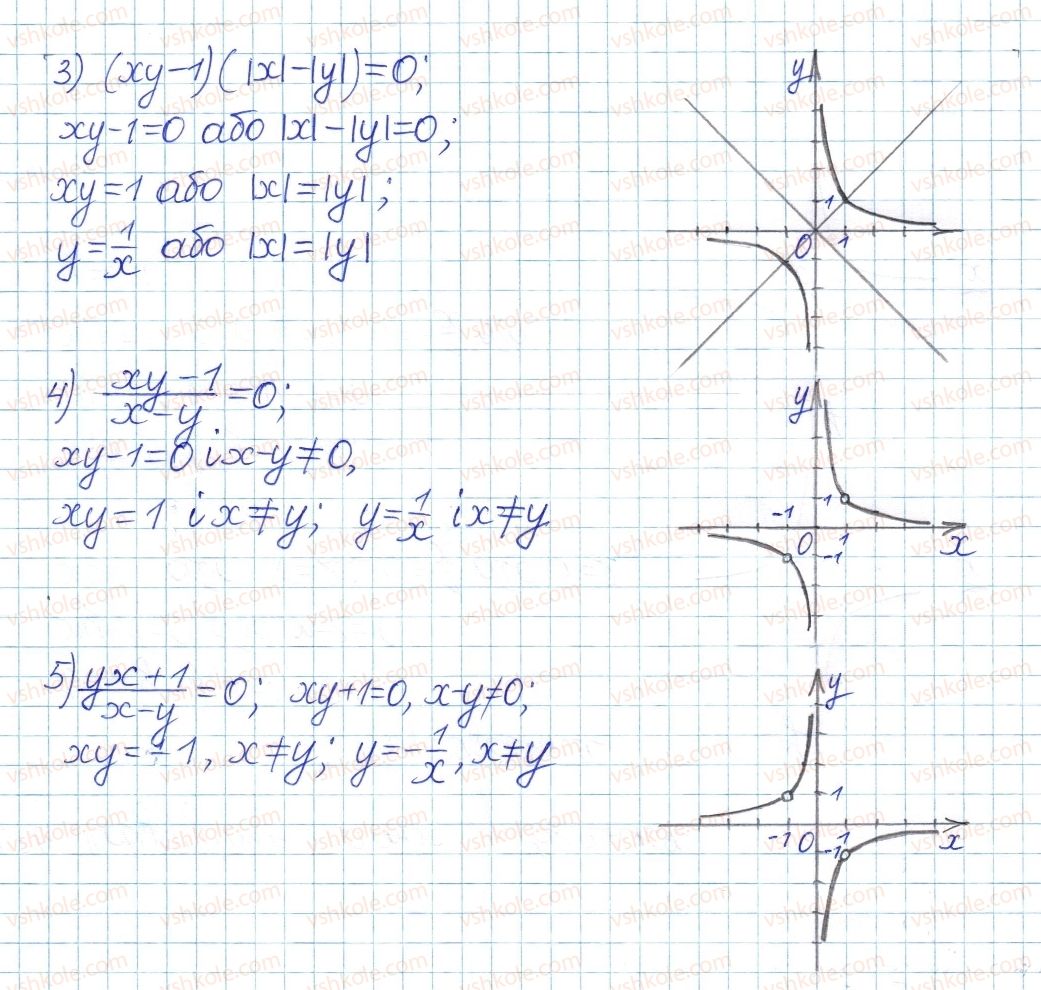 3) (xy-1)(|x|-|y|)=0;
xy-1=0 або |x|-|y|=0;
xy=1 або |x|=|y|;
y=1/x або |x|=|y|
y
1
0 1
4) (xy-1)/(x-y)=0;
xy-1=0 і x-y≠0,
xy=1 і x≠y; y=1/x і x≠y
y
1
-1
0 1 x
-1
5) (yx+1)/(x-y)=0; xy+1=0, x-y≠0;
xy=-1, x≠y; y=-1/x, x≠y
y
1
-1 0 1 x
-1
vshkole.com